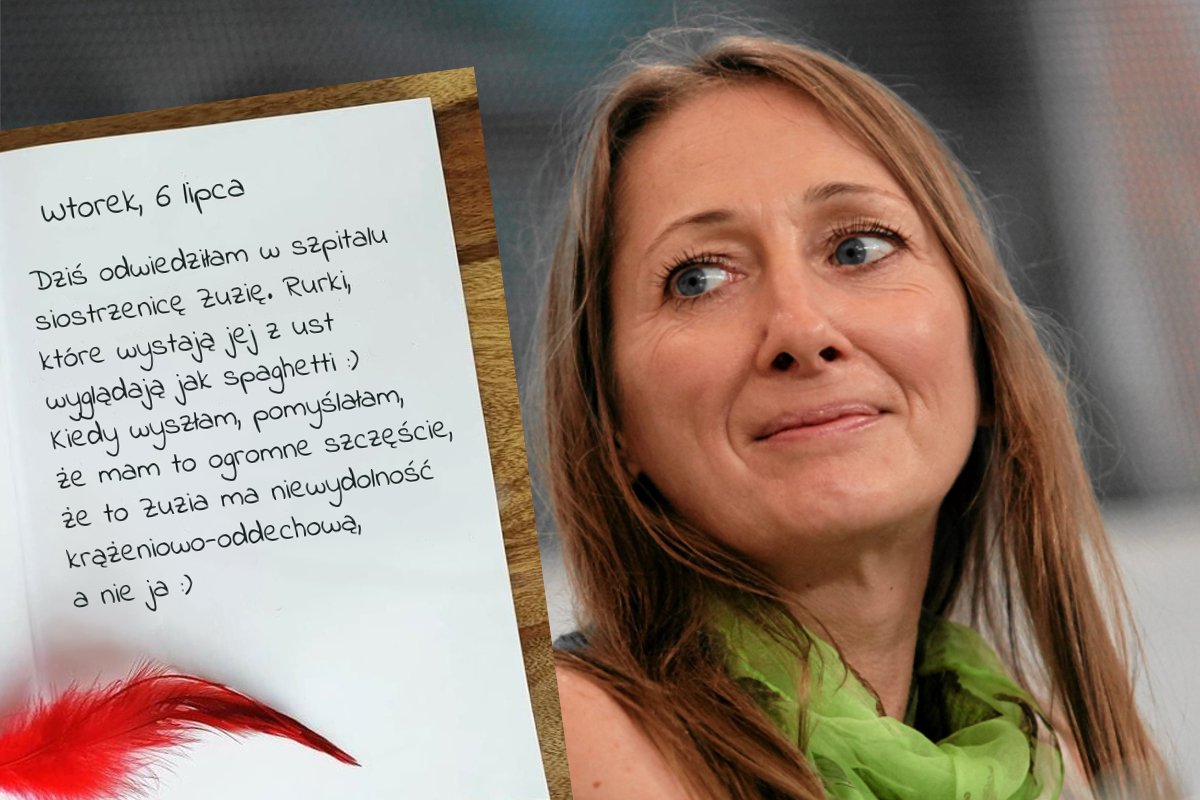 wtorek, 6 lipca
Dziś odwiedziłam w szpitalu
siostrzenicę Zuzię. Rurki,
które wystają jej z ust
wyglądają jak spaghetti :)
Kiedy wyszłam, pomyślałam,
że mam to ogromne szczęście,
że to Zuzia ma niewydolność
krążeniowo-oddechową,
a nie ja :)